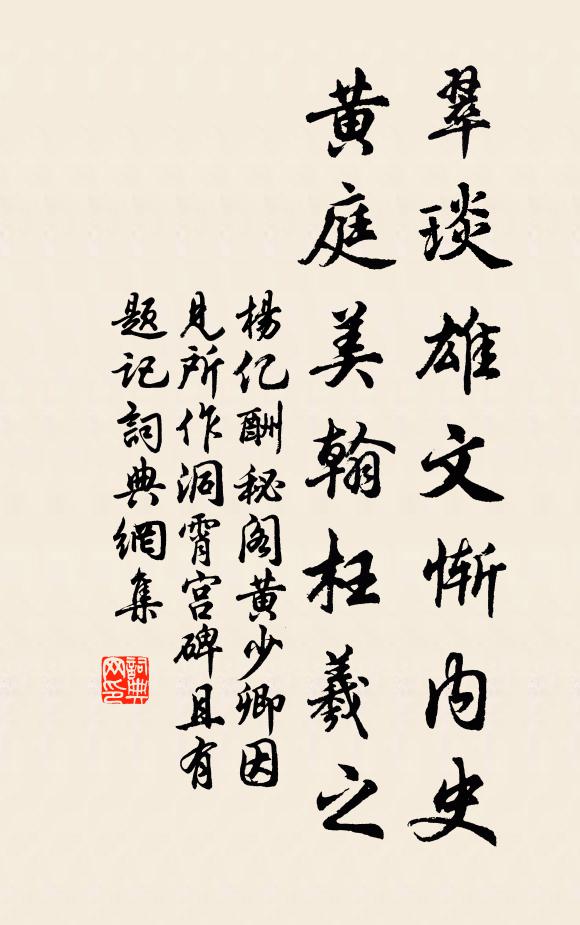 翠琰雄文慚内史
黄庭美翰枉羲之
楊亿酬秘阁黄少卿因
見所作洞霄宫碑且有
题记詞典網集
詞典網印